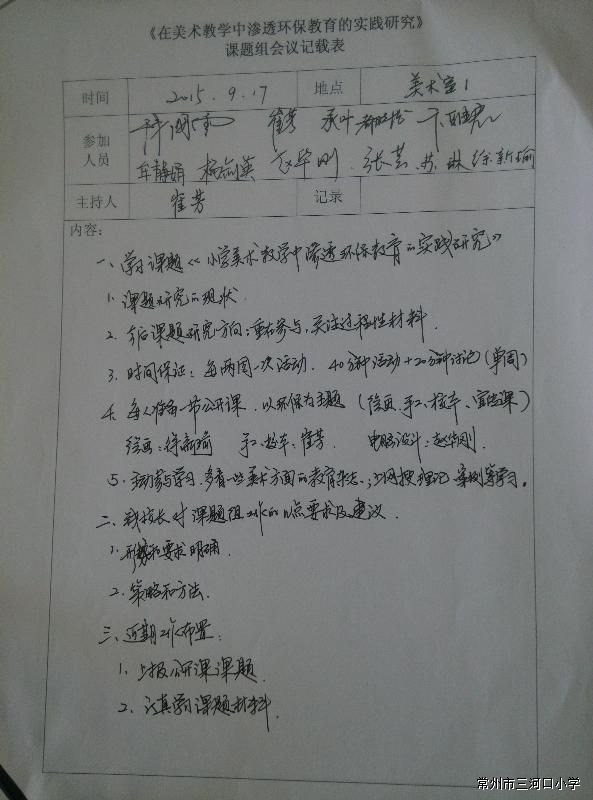 《在美术教学中渗透环保教育的实践研究》
课题组会议记载表
时间 2015.9.17 地点 美术室1
参加 崔芳
人员 牟静娟 赵华刚 张芸 苏琳 徐新瑜
主持人 崔芳 记录
内容：
一、学习课题《小学美术教学中渗透环保教育的实践研究》
1. 课题研究的现状
2. 今后课题研究方向：重在参与，关注过程性材料.
3. 时间保证：每两周一次活动. 40分钟活动+20分钟讨论(单周)
4. 每人准备一节公开课. 以环保为主题 (绘画、手工、校车、
绘画：徐新瑜 手工、校车、崔芳. 电脑设计：赵华刚.
5. 主动参与学习. 多看一些美术方面的教育杂志；上网搜理论 案例等学习。
二、 校长对课题组工作的几点要求及建议.
1. 形势和要求明确.
2. 策略和方法.
三、近期工作布置：
1. 上报公开课课题.
2. 认真学习课题材料.
常州市三河口小学